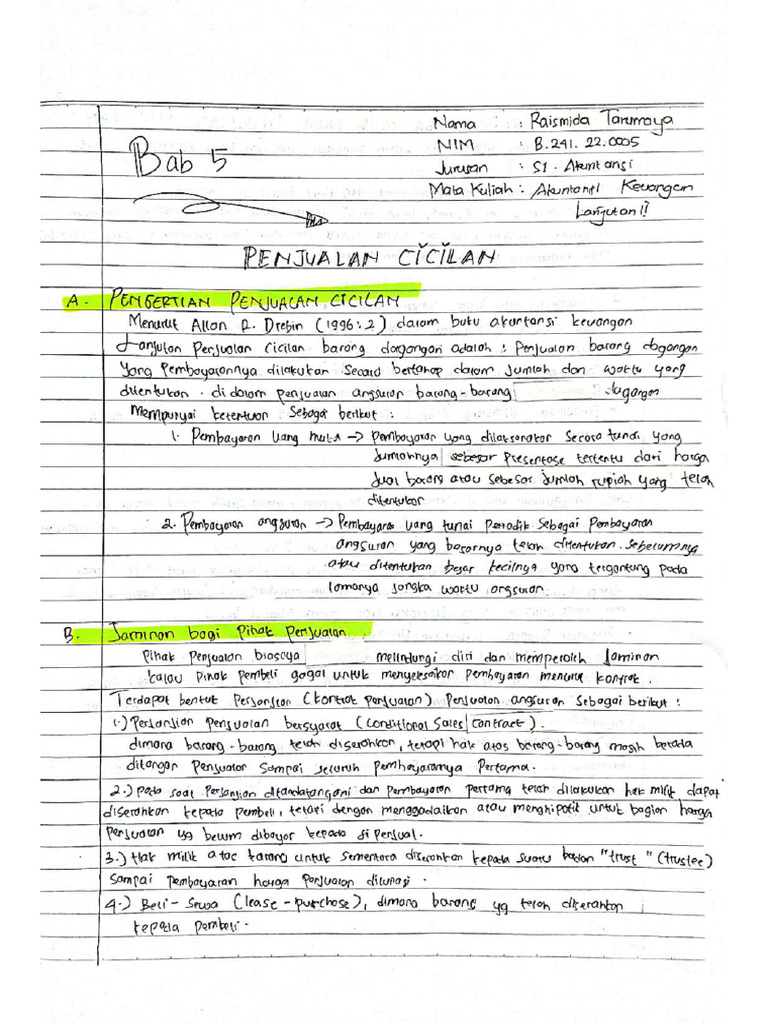 Nama : Raismida Tarumaya
NIM : B.241.22.0005
Bab 5
Jurusan : S1. Akuntansi
Mata Kuliah : Akuntansi Keuangan
Lanjutan II
PENJUALAN CICILAN
A. PENGERTIAN PENJUALAN CICILAN
Menurut Allan R. Drebin (1996:2) dalam buku akuntansi keuangan
Lanjutan Penjualan cicilan barang dagangan adalah : Penjualan barang dagangan
Yang Pembayarannya dilakukan Secara bertahap dalam Jumlah dan waktu yang
ditentukan. di dalam penjualan angsuran barang-barang dagangan
Mempunyai ketentuan Sebagai berikut :
1. Pembayaran Uang muka → Pembayaran yang dilaksanakan Secara tunai yang
Jumlahnya sebesar Presentase tertentu dari harga
Jual barang atau sebesar Jumlah rupiah yang telah
ditentukan
2. Pembayaran angsuran → Pembayaran uang tunai Periodik Sebagai Pembayaran
angsuran yang besarnya telah ditentukan sebelumnya
atau ditentukan besar kecilnya yang tergantung pada
lamanya Jangka waktu angsuran.
B. Jaminan bagi Pihak Penjualan.
Pihak Penjualan biasaya melindungi diri dan memperoleh Jaminan
kalau Pihak pembeli gagal untuk menyelesaikan pembayaran menurut kontrak.
Terdapat bentuk Perjanjian (kontrak penjualan) Penjualan angsuran Sebagai berikut :
1.) Perjanjian Penjualan bersyarat (Conditional Sales contract).
dimana barang-barang telah diserahkan, tetapi hak atas barang-barang masih berada
ditangan Penjualan Sampai seluruh Pembayarannya Pertama.
2.) pada saat Perjanjian ditandatangani dan Pembayaran pertama telah dilakukan hak milik dapat
diserahkan kepada pembeli, tetapi dengan menggadaikan atau menghipotik untuk bagian harga
Penjualan yg belum dibayar kepada si penjual.
3.) Hak milik atas barang untuk sementara diserahkan kepada suatu badan "trust" (trustee)
sampai pembayaran harga Penjualan dilunasi.
4.) Beli-Sewa (lease-purchase), dimana barang yg telah diserahkan
kepada pembeli.